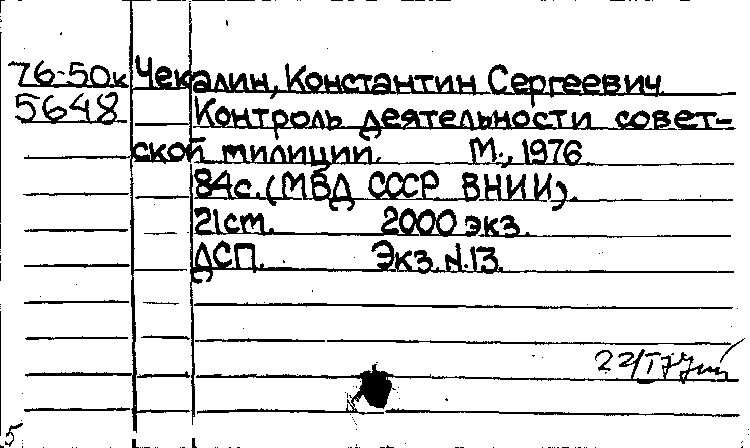 76-50к Чекалин, Константин Сергеевич
5648 Контроль деятельности совет-
ской милиции. М., 1976
84с. (МВД СССР ВНИИ).
21ст. 2000 экз.
ДСП. Экз. N.13.
22/I 77
5